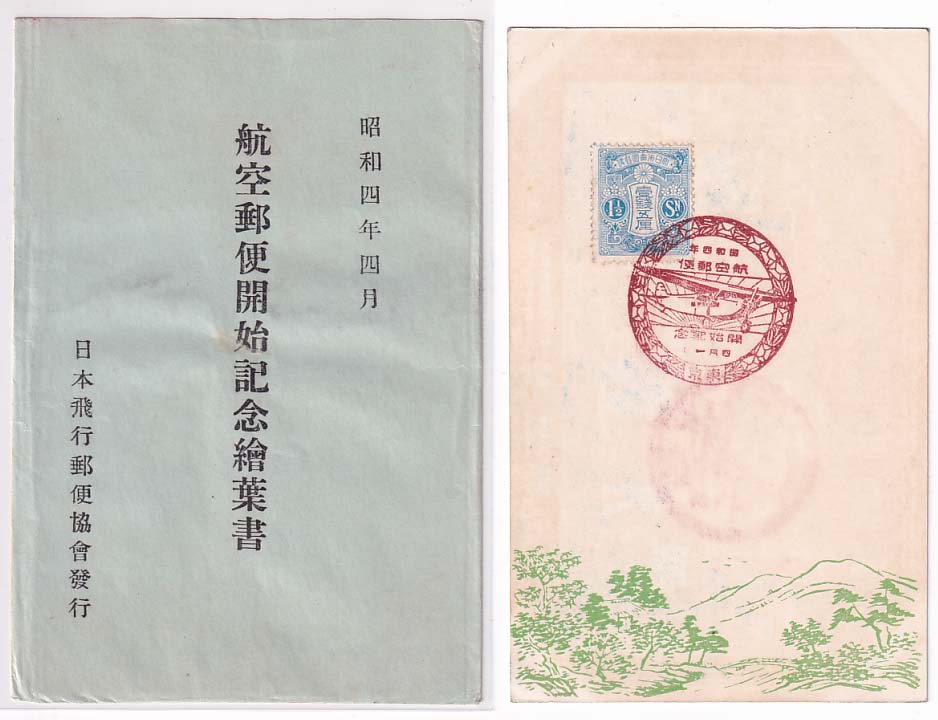 昭和四年四月
航空郵便開始記念繪葉書
日本飛行郵便協會發行
大日本帝國郵便
壹錢五厘
1½ SN
昭和四年
航空郵便
開始記念
四月一日
東京